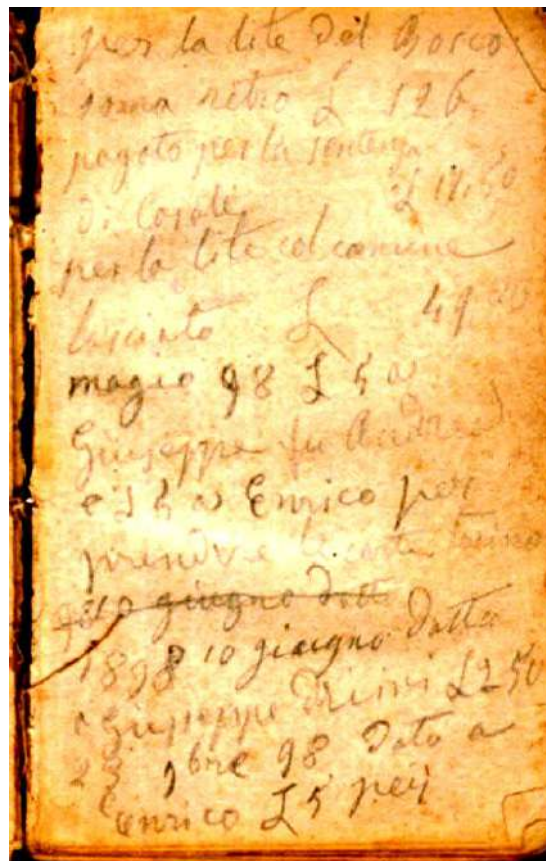 per la lite del Bosco
soma retro £ 126
pagato per la sentenza
di Casale £ 11.50
per la lite col comune
lasciato £ 49
magio 98 £ 5 a
Giuseppe fu Andrea
e £ 5 a Enrico per
prendere le carte Trino
10 giugno datto
1898 10 giugno datto
a Giuseppe £ 2 50
23 9bre 98 dato a
Enrico £ 5 per